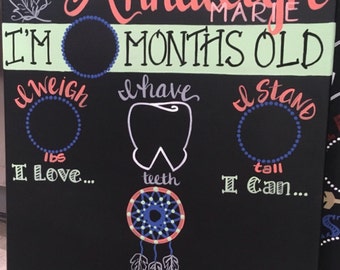 MARIE
I'M MONTHS OLD
I WEIGH I have I STAND
lbs teeth tall
I Love... I Can...